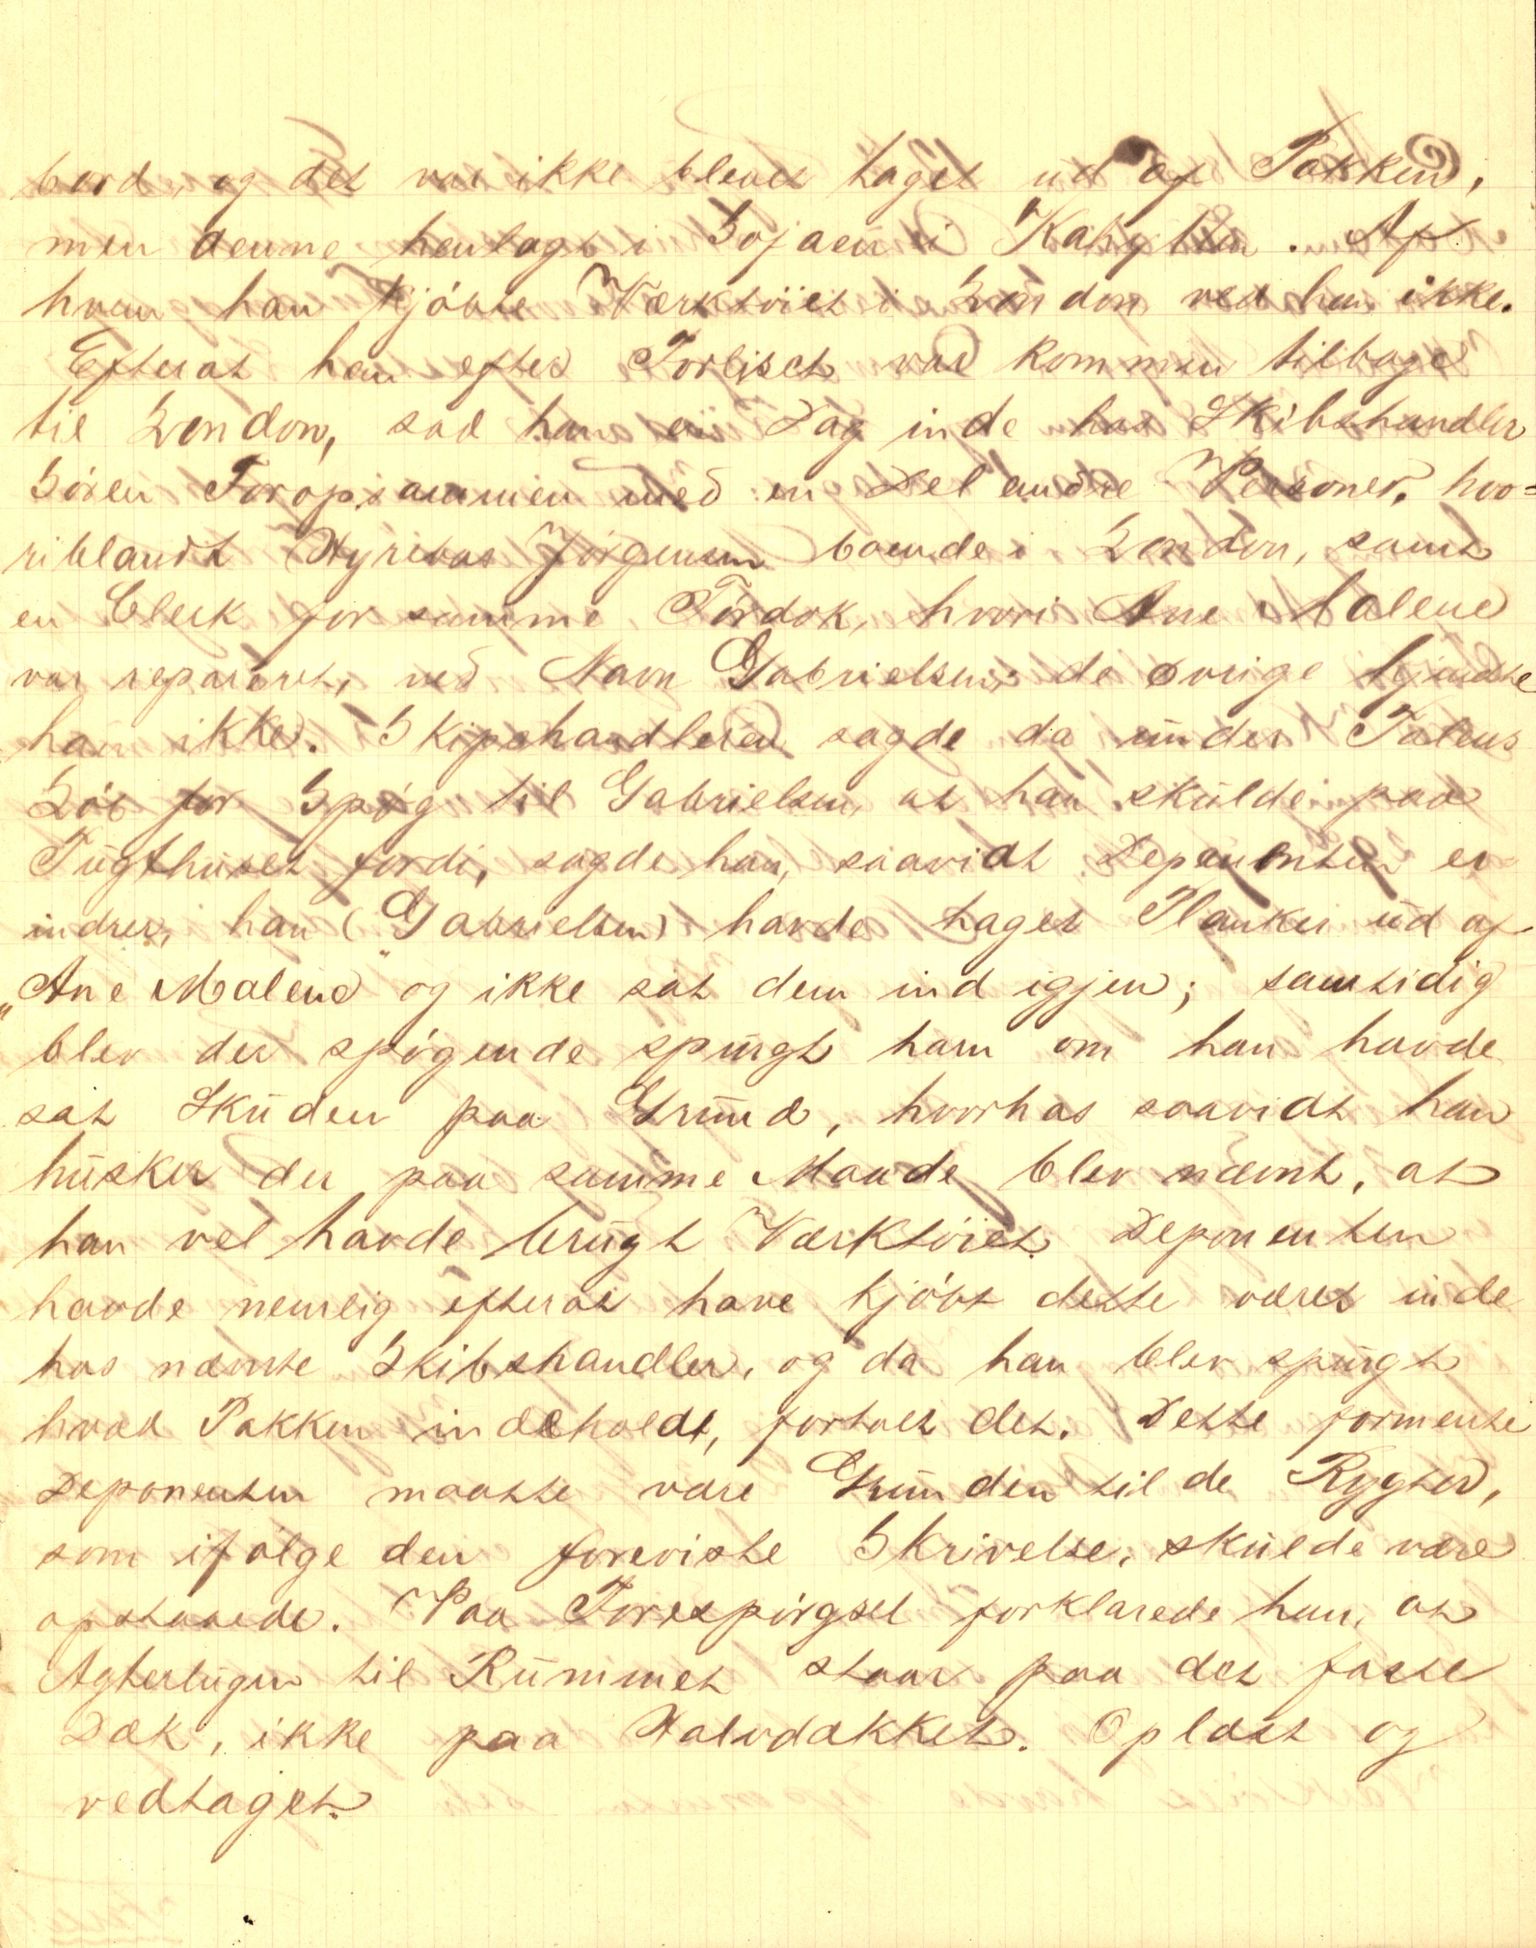 bord, og det var ikke blevet taget ud af Pakken,
men denne henlagt i Sojaen i Kahytten. Af
hvem han kjöbte Værktöiet i London ved han ikke.
Efterat han efter Forliset var kommen tilbage
til London, sad han en Dag inde hos Skibshandler
Sören med en Del andre Personer, hvo=
riblandt Hyrebas Jörgensen boende i London, samt
en Clerk for samme Tördok, hvori Ane Malene
var repareret, ved Navn Gabrielsen; de övrige kjendte
han ikke. Skipshandleren sagde da under Talens
Löb for Spög til Gabrielsen, at han skulde paa
Tugthuset fordi, sagde han, saavidt Deponenten er
indrer, han (Gabrielsen) havde taget Planker ud af
„Ane Malene" og ikke sat dem ind igjen; samtidig
blev der spögende spurgt ham om han havde
sat Skuden paa Grund, hvorhos saavidt han
husker der paa samme Maade blev nævnt, at
han vel havde brugt Værktöiet. Deponenten
havde nemlig efterat have kjöbt dette været inde
hos nævnte Skibshandler, og da han blev spurgt
hvad Pakken indeholdt, fortalt det. Dette formente
Deponenten maatte være Grunden til de Rygter,
som ifölge den foreviste Skrivelse, skulde være
opstaaede. Paa Forespörgsel forklarede han, at
Agterlugen til Rummet staar paa det faste
Dæk, ikke paa Halvdækket. Oplæst og
vedtaget.